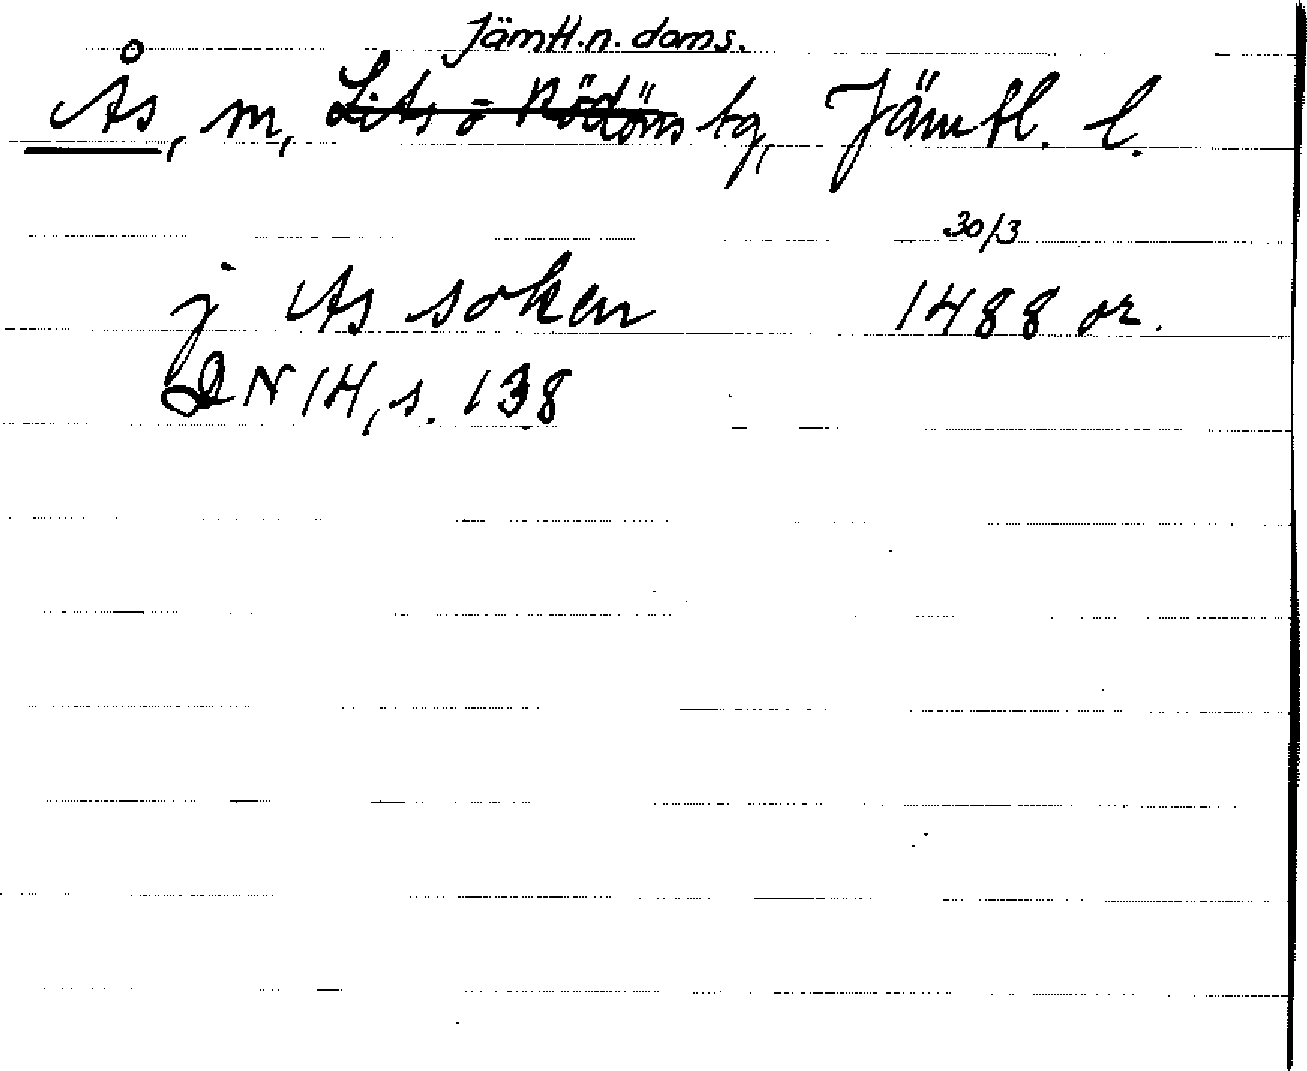 Jämtl.n. doms.
Ås, sn, Lits o Rödöns tg, Jämtl. l.
30/3
j As soken 1488 or.
DN 14, s. 138